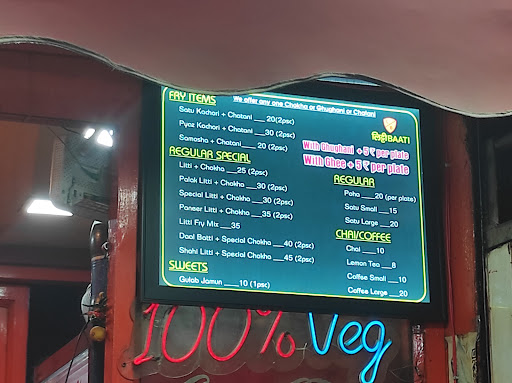 FRY ITEMS
We offer any one Chokha or Ghughani or Chatani
Satu Kachori + Chatani ___ 20(2psc)
Pyaz Kachori + Chatani ___30 (2psc)
Samosha + Chatani ___ 20 (2psc)
लिट्टीBAATI
With Ghughani + 5₹ per plate
With Ghee + 5₹ per plate
REGULAR SPECIAL
Litti + Chokha ___25 (2psc)
Palak Litti + Chokha ___30 (2psc)
Special Litti + Chokha ___30 (2psc)
Paneer Litti + Chokha ___35 (2psc)
Litti Fry Mix ___35
Daal Batti + Special Chokha ___40 (2psc)
Shahi Litti + Special Chokha ___45 (2psc)
SWEETS
Gulab Jamun ____10 (1psc)
REGULAR
Poha ____20 (per plate)
Satu Small ___15
Satu Large ___20
CHAI/COFFEE
Chai ____10
Lemon Tea ___8
Coffee Small ___10
Coffee Large ___20
100% Veg